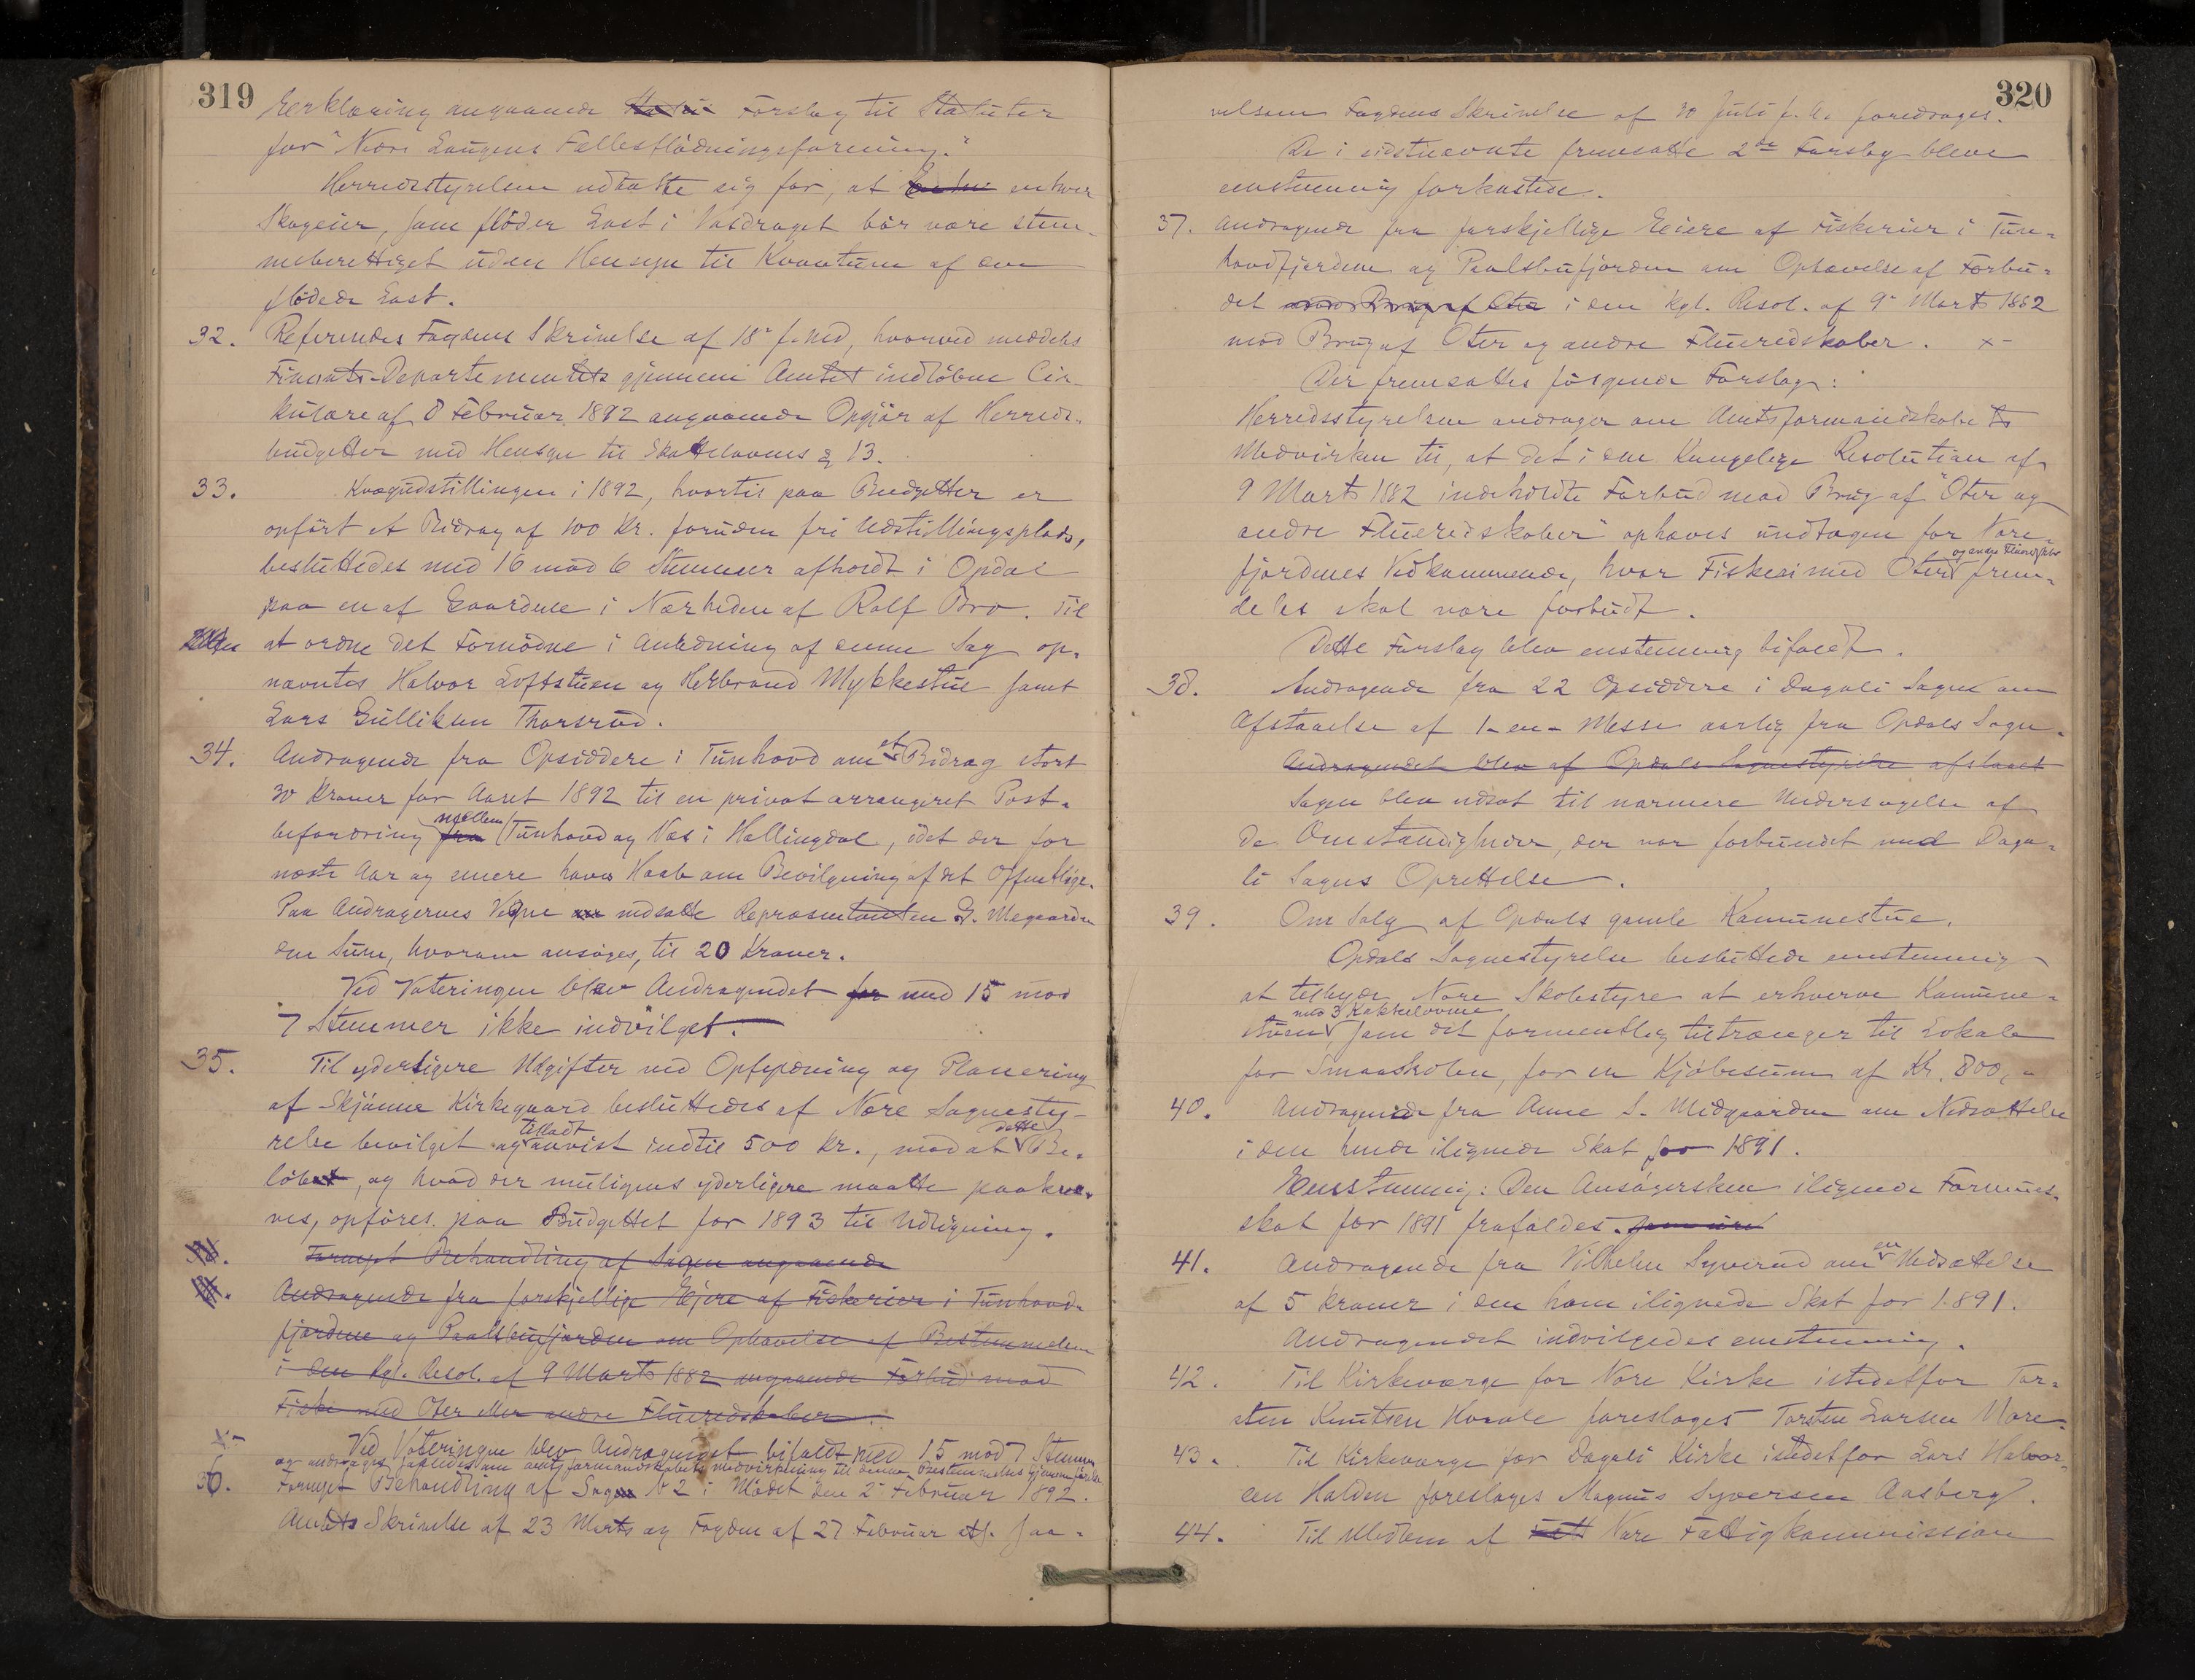 319
Erklæring angaaende Forslag til Statuter
for "Nore Laugens Fællesflödningsforening."
Herredsstyrelsen udtalte sig for, at enhver
Skogeier, som flöder Last i Vasdraget bör være stem-
meberettiget uden Hensyn til Kvantum af den
flödede Last.
32. Refereredes Fogdens Skrivelse af 18de f. Md, hvorved meddeles
Finants-Departementets gjennem Amtet indlöbne Cir-
kulære af 8 Februar 1892 angaaende Opgjör af Herreds-
budgetter med Hensyn til Skattelovens § 13.
33. Kvægudstillingen i 1892, hvortil paa Budgettet er
opfört et Bidrag af 100 Kr. foruden fri Udstillingsplads,
besluttedes med 16 mod 6 Stemmer afholdt i Opdal
paa en af Gaardene i Nærheden af Rolf Bro. Til
at ordne det Fornödne i Anledning af denne Sag op-
nævntes Halvor Loftstuen og Herbrand Mykkestue samt
Lars Gulliksen Thorsrud.
34. Andragende fra Opsiddere i Tunhovd om et Bidrag stort
30 Kroner for Aaret 1892 til en privat arrangeret Post-
befordring fra mellem Tunhovd og Næs i Hallingdal, idet der for
næste Aar og senere haves Haab om Bevilgning af det Offentlige.
Paa Andragernes Vegne nedsatte Repræsentanten G. Megaarden
den Sum, hvorom ansöges, til 20 Kroner.
Ved Voteringen blev Andragendet for med 15 mod
7 Stemmer ikke indvilget.
35. Til yderligere Udgifter ved Opfyldning og Planering
af Skjönne Kirkegaard besluttedes af Nore Sognesty-
relse bevilget og tilladt anvist indtil 500 Kr., mod at dette Be-
löb, og hvad der muligens yderligere maatte paakræ-
ves, opföres paa Budgettet for 1893 til Udligning.
Fornyet Behandling af Sagen angaaende
Andragende fra forskjellige Ejere af Fiskerier i Tunhovd-
fjorden og Paalsbufjorden om Ophævelse af Bestemmelsen
i den Kgl. Resol. af 9 Marts 1882 angaaende Forbud mod
Fiske med Oter eller andre Flueredskaber.
x- Ved Voteringen blev Andragendet bifaldt med 15 mod 7 Stemmer
og andrages saaledes om amtsformandskabets medvirkning til denne Bestemmelses gjennemförelse
36. Fornyet Behandling af Sag No 2 i Mödet den 2de Februar 1892.
Amtets Skrivelse af 23 Marts og Fogden af 27 Februar
320
velsom Fogdens Skrivelse af 30 Juli f. A. foredroges.
De i sidstnævnte fremsatte 2de Forslag bleve
enstemmig forkastede.
37. Andragende fra forskjellige Eiere af Fiskerier i Tun-
hovdfjorden og Paalsbufjorden om Ophævelse af Forbu-
det mod Brug af Oter i den Kgl. Resol. af 9de Marts 1882
mod Brug af Oter og andre Flueredskaber. x-
Der fremsattes fölgende Forslag:
Herredsstyrelsen andrager om Amtsformandskabets
Medvirken til, at det i den Kongelige Resolution af
9 Marts 1882 indeholdte Forbud mod Brug af "Oter og
andre Flueredskaber" ophæves undtagen for Nore-
fjordenes Vedkommende, hvor Fiskeri med Oter og andre Flueredskaber frem-
deles skal være forbudt.
Dette Forslag blev enstemmig bifaldt.
38. Andragende fra 22 Opsiddere i Dagali Sogn om
Afstaaelse af 1-en- Messe aarlig fra Opdals Sogn.
Andragendet blev af Opdals Sognestyrelse afslaaet
Sagen blev udsat til nærmere Undersögelse af
de Omstændigheder, der var forbundet med Daga-
li Sogns Oprettelse.
39. Om Salg af Opdals gamle Kommunestue.
Opdals Sognestyrelse besluttede enstemmig
at tilbyde Nore Skolestyre at erhverve Kommune-
stuen med 3 Kakkelovne, som det formentlig tiltrænger til Lokale
for Smaaskolen, for en Kjöbesum af Kr. 800,-
40. Andragende fra Anne S. Midgaarden om Nedsættelse
i den hende ilignede Skat for 1891.
Enstemmig: Den Ansögersken ilignede Formues-
skat for 1891 frafaldes.
41. Andragende fra Vilhelm Syverud om en Nedsættelse
af 5 Kroner i den ham ilignede Skat for 1891.
Andragendet indvilgedes enstemmig.
42. Til Kirkeværge for Nore Kirke istedetfor Tor-
sten Knutsen Hovale foresloges Torsten Larsen Nore
43. Til Kirkeværge for Dagali Kirke istedetfor Lars Halvor-
sen Halden foresloges Magnus Syversen Aasberg.
44. Til Medlem af Nore Fattigkommission